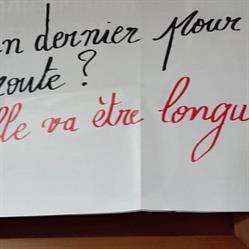 un dernier pour
route ?
lle va être longu